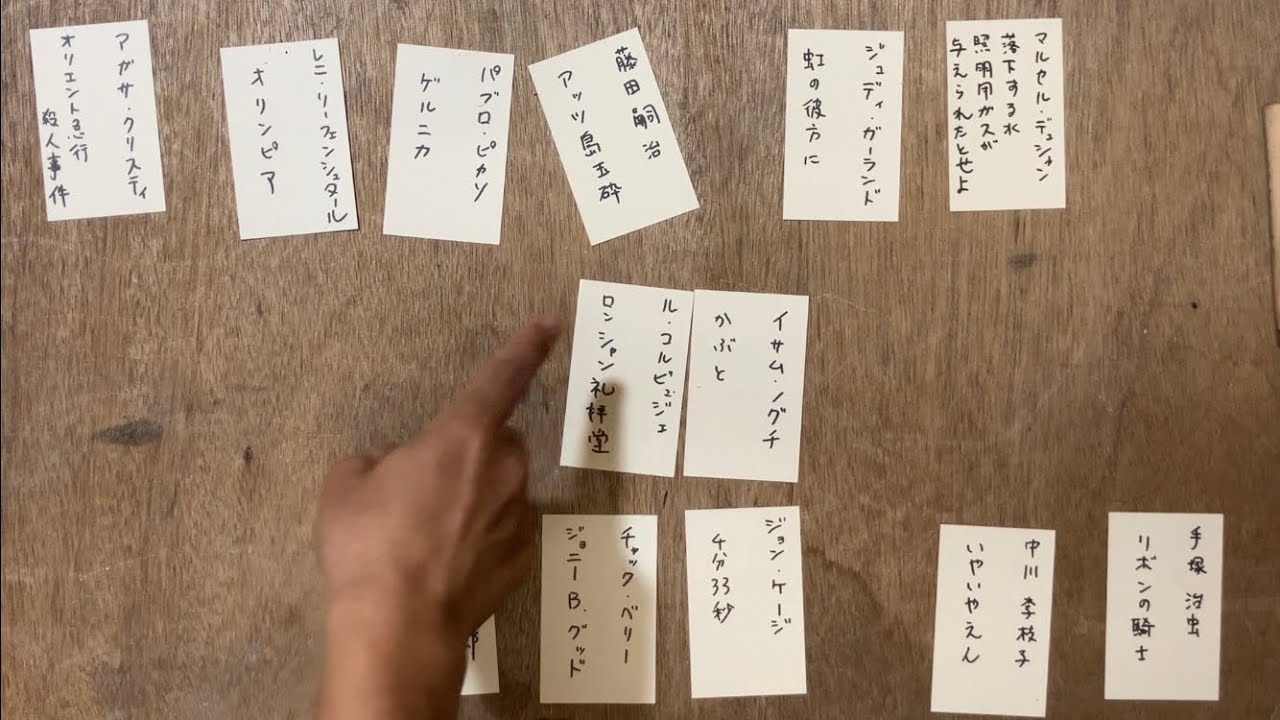 アガサ・クリスティ
オリエント急行
殺人事件
レニ・リーフェンシュタール
オリンピア
パブロ・ピカソ
ゲルニカ
藤田嗣治
アッツ島玉砕
ジュディ・ガーランド
虹の彼方に
マルセル・デュシャン
落下する水
照明用ガスが
与えられたとせよ
ル・コルビュジェ
ロンシャン礼拝堂
イサム・ノグチ
かぶと
チャック・ベリー
ジョニーB.グッド
ジョン・ケージ
4分33秒
中川 李枝子
いやいやえん
手塚 治虫
リボンの騎士